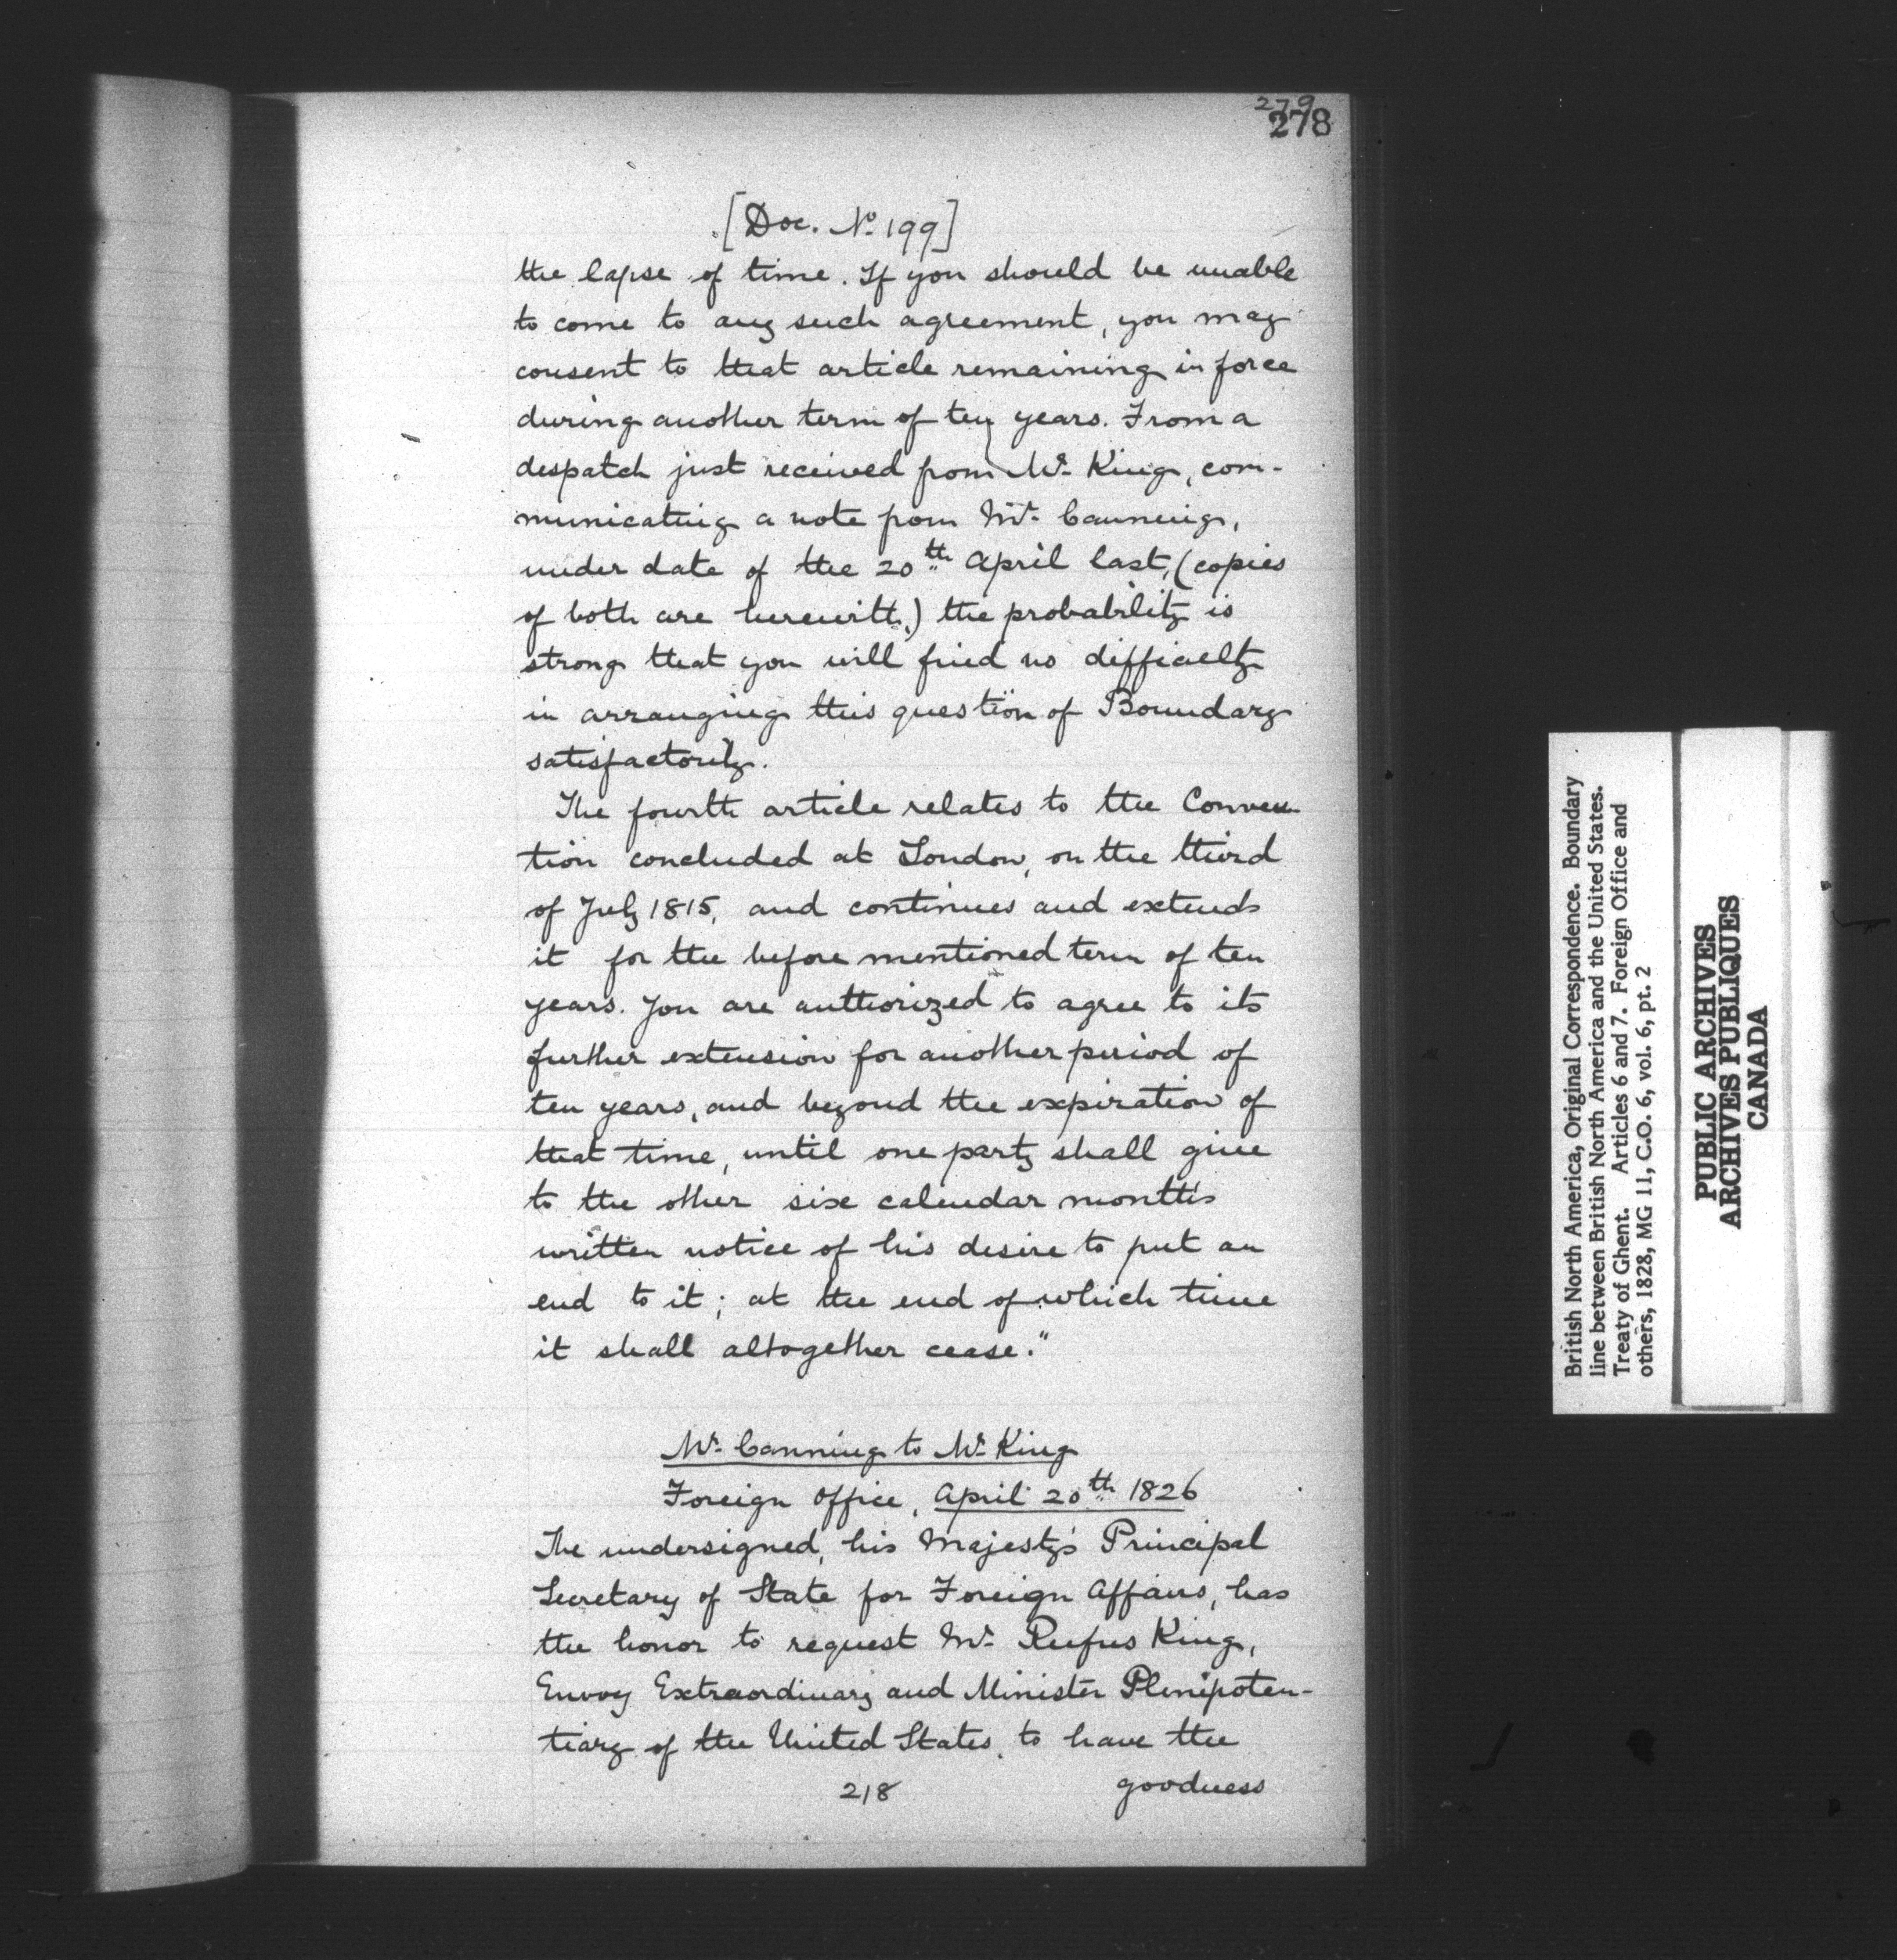 279
278
[Doc. No. 199]
the lapse of time. If you should be unable
to come to any such agreement, you may
consent to that article remaining in force
during another term of ten years. From a
despatch just received from Mr. King, com-
municating a note from Mr. Canning,
under date of the 20th April last, (copies
of both are herewith,) the probability is
strong that you will find no difficulty
in arranging this question of Boundary
satisfactorily.
The fourth article relates to the Conven-
tion concluded at London, on the third
of July 1815, and continues and extends
it for the before mentioned term of ten
years. You are authorized to agree to its
further extension for another period of
ten years, and beyond the expiration of
that time, until one party shall give
to the other six calendar months
written notice of his desire to put an
end to it; at the end of which time
it shall altogether cease."
Mr. Canning to Mr. King
Foreign Office, April 20th 1826
The undersigned, his Majesty's Principal
Secretary of State for Foreign Affairs, has
the honor to request Mr. Rufus King,
Envoy Extraordinary and Minister Plenipoten-
tiary of the United States, to have the
218 goodness
British North America, Original Correspondence. Boundary
line between British North America and the United States.
Treaty of Ghent. Articles 6 and 7. Foreign Office and
others, 1828, MG 11, C.O. 6, vol. 6, pt. 2
PUBLIC ARCHIVES
ARCHIVES PUBLIQUES
CANADA